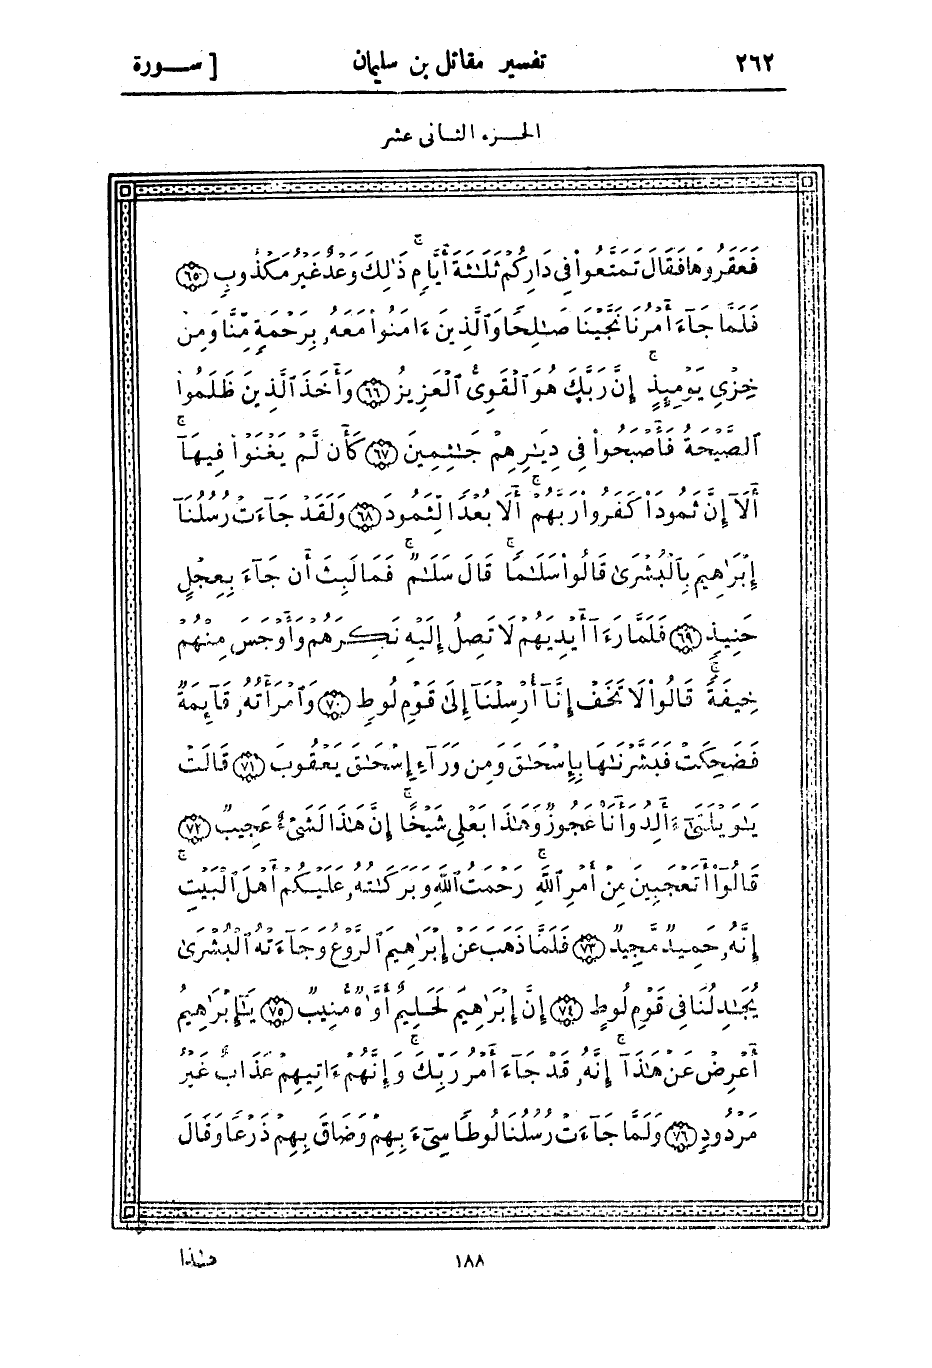 ٢٦٢ تفسير مقاتل بن سليمان [ ســورة
الجـزء الثـانى عشر
فَعَقَرُوهَا فَقَالَ تَمَتَّعُوا۟ فِى دَارِكُمْ ثَلَـٰثَةَ أَيَّامٍ ۖ ذَٰلِكَ وَعْدٌ غَيْرُ مَكْذُوبٍ ٦٥
فَلَمَّا جَآءَ أَمْرُنَا نَجَّيْنَا صَـٰلِحًا وَٱلَّذِينَ ءَامَنُوا۟ مَعَهُۥ بِرَحْمَةٍ مِّنَّا وَمِنْ
خِزْىِ يَوْمِئِذٍ ۗ إِنَّ رَبَّكَ هُوَ ٱلْقَوِىُّ ٱلْعَزِيزُ ٦٦ وَأَخَذَ ٱلَّذِينَ ظَلَمُوا۟
ٱلصَّيْحَةُ فَأَصْبَحُوا۟ فِى دِيَـٰرِهِمْ جَـٰثِمِينَ ٦٧ كَأَن لَّمْ يَغْنَوْا۟ فِيهَآ ۗ
أَلَآ إِنَّ ثَمُودَا۟ كَفَرُوا۟ رَبَّهُمْ ۗ أَلَا بُعْدًا لِّثَمُودَ ٦٨ وَلَقَدْ جَآءَتْ رُسُلُنَآ
إِبْرَٰهِيمَ بِٱلْبُشْرَىٰ قَالُوا۟ سَلَـٰمًا ۖ قَالَ سَلَـٰمٌ ۖ فَمَا لَبِثَ أَن جَآءَ بِعِجْلٍ
حَنِيذٍ ٦٩ فَلَمَّا رَءَآ أَيْدِيَهُمْ لَا تَصِلُ إِلَيْهِ نَكِرَهُمْ وَأَوْجَسَ مِنْهُمْ
خِيفَةً ۚ قَالُوا۟ لَا تَخَفْ إِنَّآ أُرْسِلْنَآ إِلَىٰ قَوْمِ لُوطٍ ٧٠ وَٱمْرَأَتُهُۥ قَآئِمَةٌ
فَضَحِكَتْ فَبَشَّرْنَـٰهَا بِإِسْحَـٰقَ وَمِن وَرَآءِ إِسْحَـٰقَ يَعْقُوبَ ٧١ قَالَتْ
يَـٰوَيْلَتَىٰٓ ءَأَلِدُ وَأَنَا۠ عَجُوزٌ وَهَـٰذَا بَعْلِى شَيْخًا ۖ إِنَّ هَـٰذَا لَشَىْءٌ عَجِيبٌ ٧٢
قَالُوٓا۟ أَتَعْجَبِينَ مِنْ أَمْرِ ٱللَّهِ ۖ رَحْمَتُ ٱللَّهِ وَبَرَكَـٰتُهُۥ عَلَيْكُمْ أَهْلَ ٱلْبَيْتِ ۚ
إِنَّهُۥ حَمِيدٌ مَّجِيدٌ ٧٣ فَلَمَّا ذَهَبَ عَنْ إِبْرَٰهِيمَ ٱلرَّوْعُ وَجَآءَتْهُ ٱلْبُشْرَىٰ
يُجَـٰدِلُنَا فِى قَوْمِ لُوطٍ ٧٤ إِنَّ إِبْرَٰهِيمَ لَحَلِيمٌ أَوَّٰهٌ مُّنِيبٌ ٧٥ يَـٰٓإِبْرَٰهِيمُ
أَعْرِضْ عَنْ هَـٰذَآ ۖ إِنَّهُۥ قَدْ جَآءَ أَمْرُ رَبِّكَ ۖ وَإِنَّهُمْ ءَاتِيهِمْ عَذَابٌ غَيْرُ
مَرْدُودٍ ٧٦ وَلَمَّا جَآءَتْ رُسُلُنَا لُوطًا سِىٓءَ بِهِمْ وَضَاقَ بِهِمْ ذَرْعًا وَقَالَ
١٨٨
هـٰذا